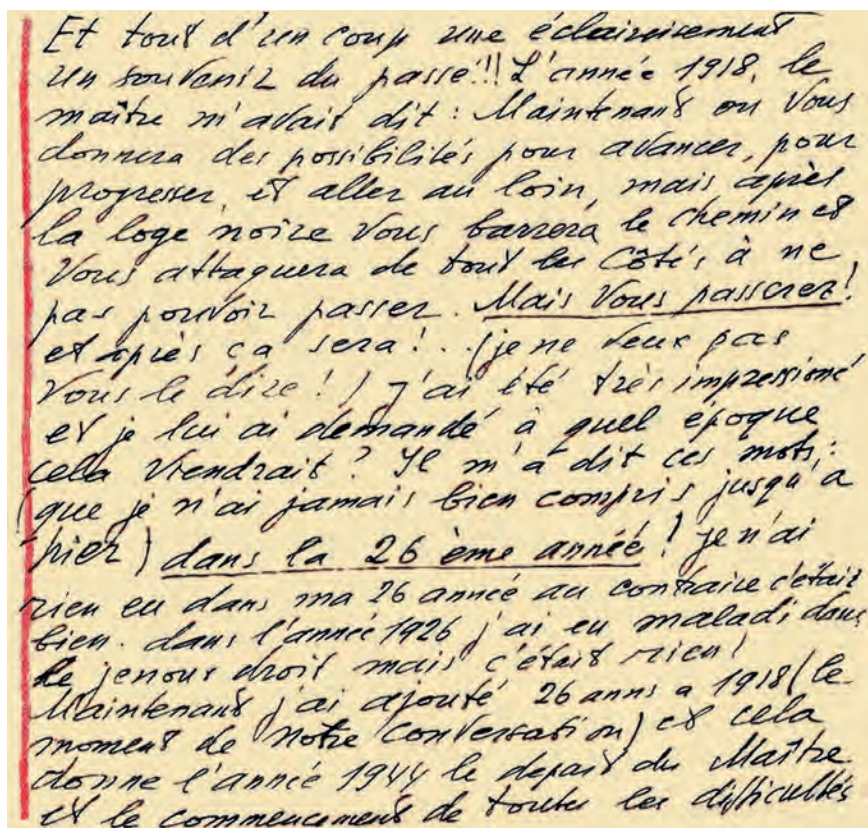 Et tout d'un coup une éclaircisement
un souvenir du passé!!! L'année 1918, le
maître m'avait dit : Maintenant on Vous
donnera des possibilités pour avancer, pour
progresser, et aller au loin, mais après
la loge noire Vous barrera le chemin et
Vous attaquera de tout les côtés à ne
pas pouvoir passer. Mais Vous passerez!
et après ça sera!.. (je ne veux pas
Vous le dire!) j'ai été très impressioné
et je lui ai demandé à quel époque
cela viendrait? Il m'a dit ces mots:
(que je n'ai jamais bien compris jusqu'a
hier) dans la 26 ème année! je n'ai
rien eu dans ma 26 année au contraire c'était
bien. dans l'année 1926 j'ai eu maladi dans
le jenous droit mais c'était rien!
Maintenant j'ai ajouté 26 anns a 1918 (le
moment de notre Conversation) et cela
donne l'année 1944 le depart du Maître
et le commencement de toutes les difficultés